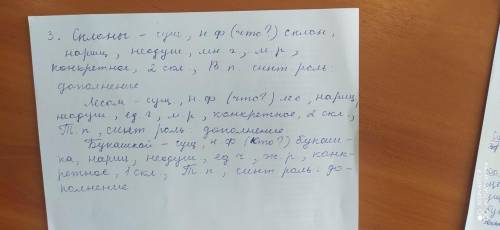 3. Склоны - сущ, н.ф (что?) склон,
нариц, неодуш, мн.ч, м.р,
конкретное, 2 скл, В.п. синт роль:
дополнение
Лесом - сущ, н.ф (что?) лес, нариц,
неодуш, ед.ч, м.р, конкретное, 2 скл.,
Т.п, синт роль: дополнение
Букашкой - сущ, н.ф (кто?) букаш-
ка, нариц, неодуш, ед.ч, ж.р, конк-
ретное, 1 скл, Т.п, синт роль: до-
полнение